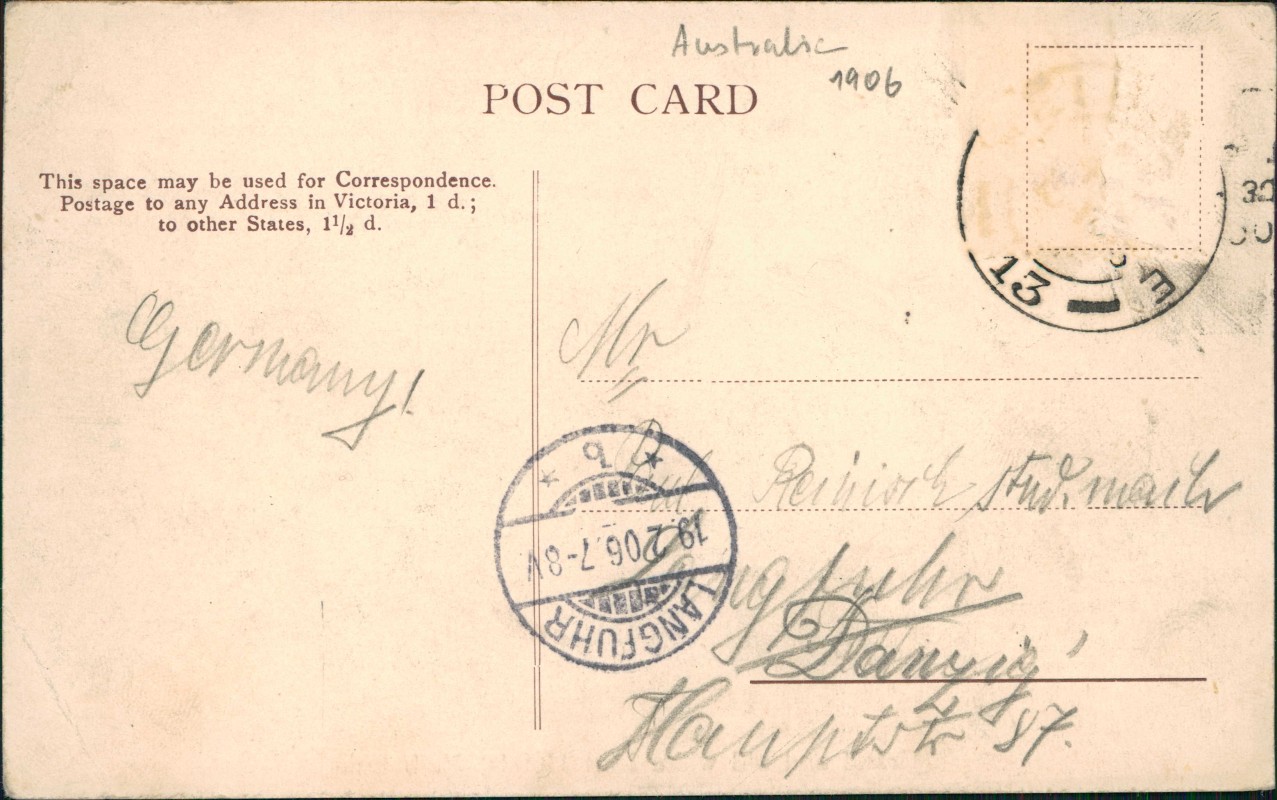 Australia
1906
POST CARD
This space may be used for Correspondence.
Postage to any Address in Victoria, 1 d.;
to other States, 1 1/2 d.
13 E
30
Germany!
Mr
Paul Reinisch stud. mach
Langfuhr
Danzig
Hauptstr 87.
* b *
19.2.06.7-8V.
LANGFUHR